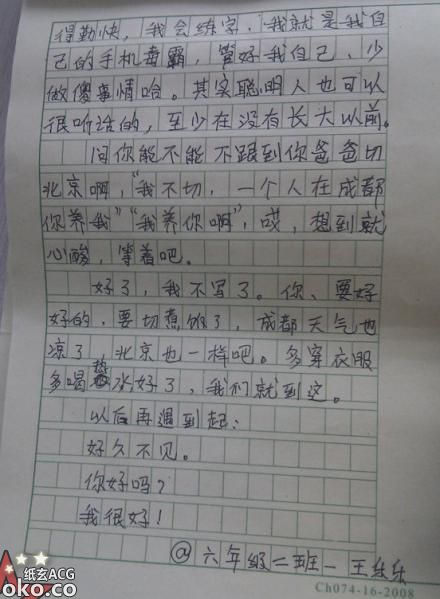 得勤快，我会练字，我就是我自
己的手机毒霸，管好我自己、少
做傻事情哈。其实聪明人也可以
很听话的，至少在没有长大以前。
问你能不能不跟到你爸爸切
北京啊，"我不切，一个人在成都
你养我""我养你啊"，哎，想到就
心酸，等着吧。
好了，我不写了。你、要好
好的，要切煮饭了，成都天气也
凉了，北京也一样吧。多穿衣服
多喝热水好了，我们就到这。
以后再遇到起：
好久不见。
你好吗？
我很好！
@六年级二班一王乐乐
Ch074-16-2008
纸玄ACG
oko.co